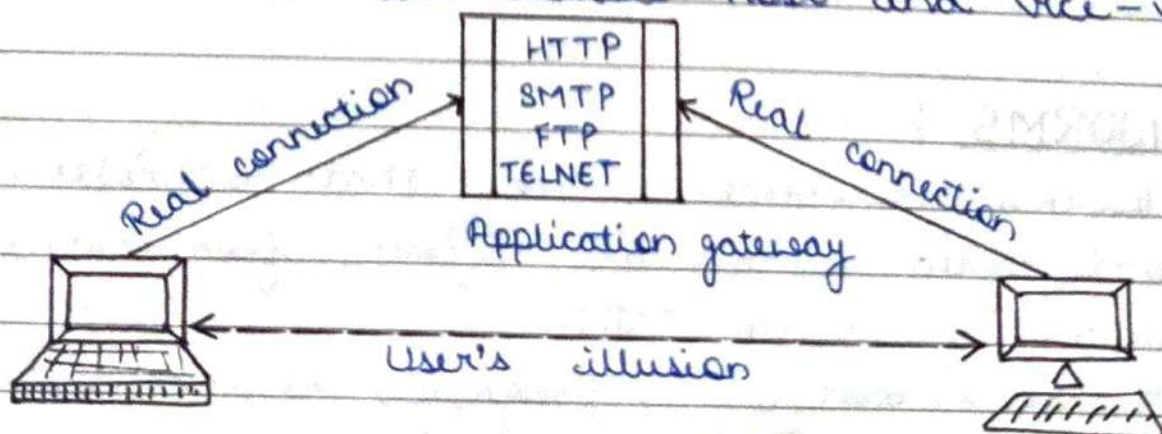 and vice-
HTTP
SMTP
FTP
TELNET
Real connection
Real connection
Application gateway
User's illusion